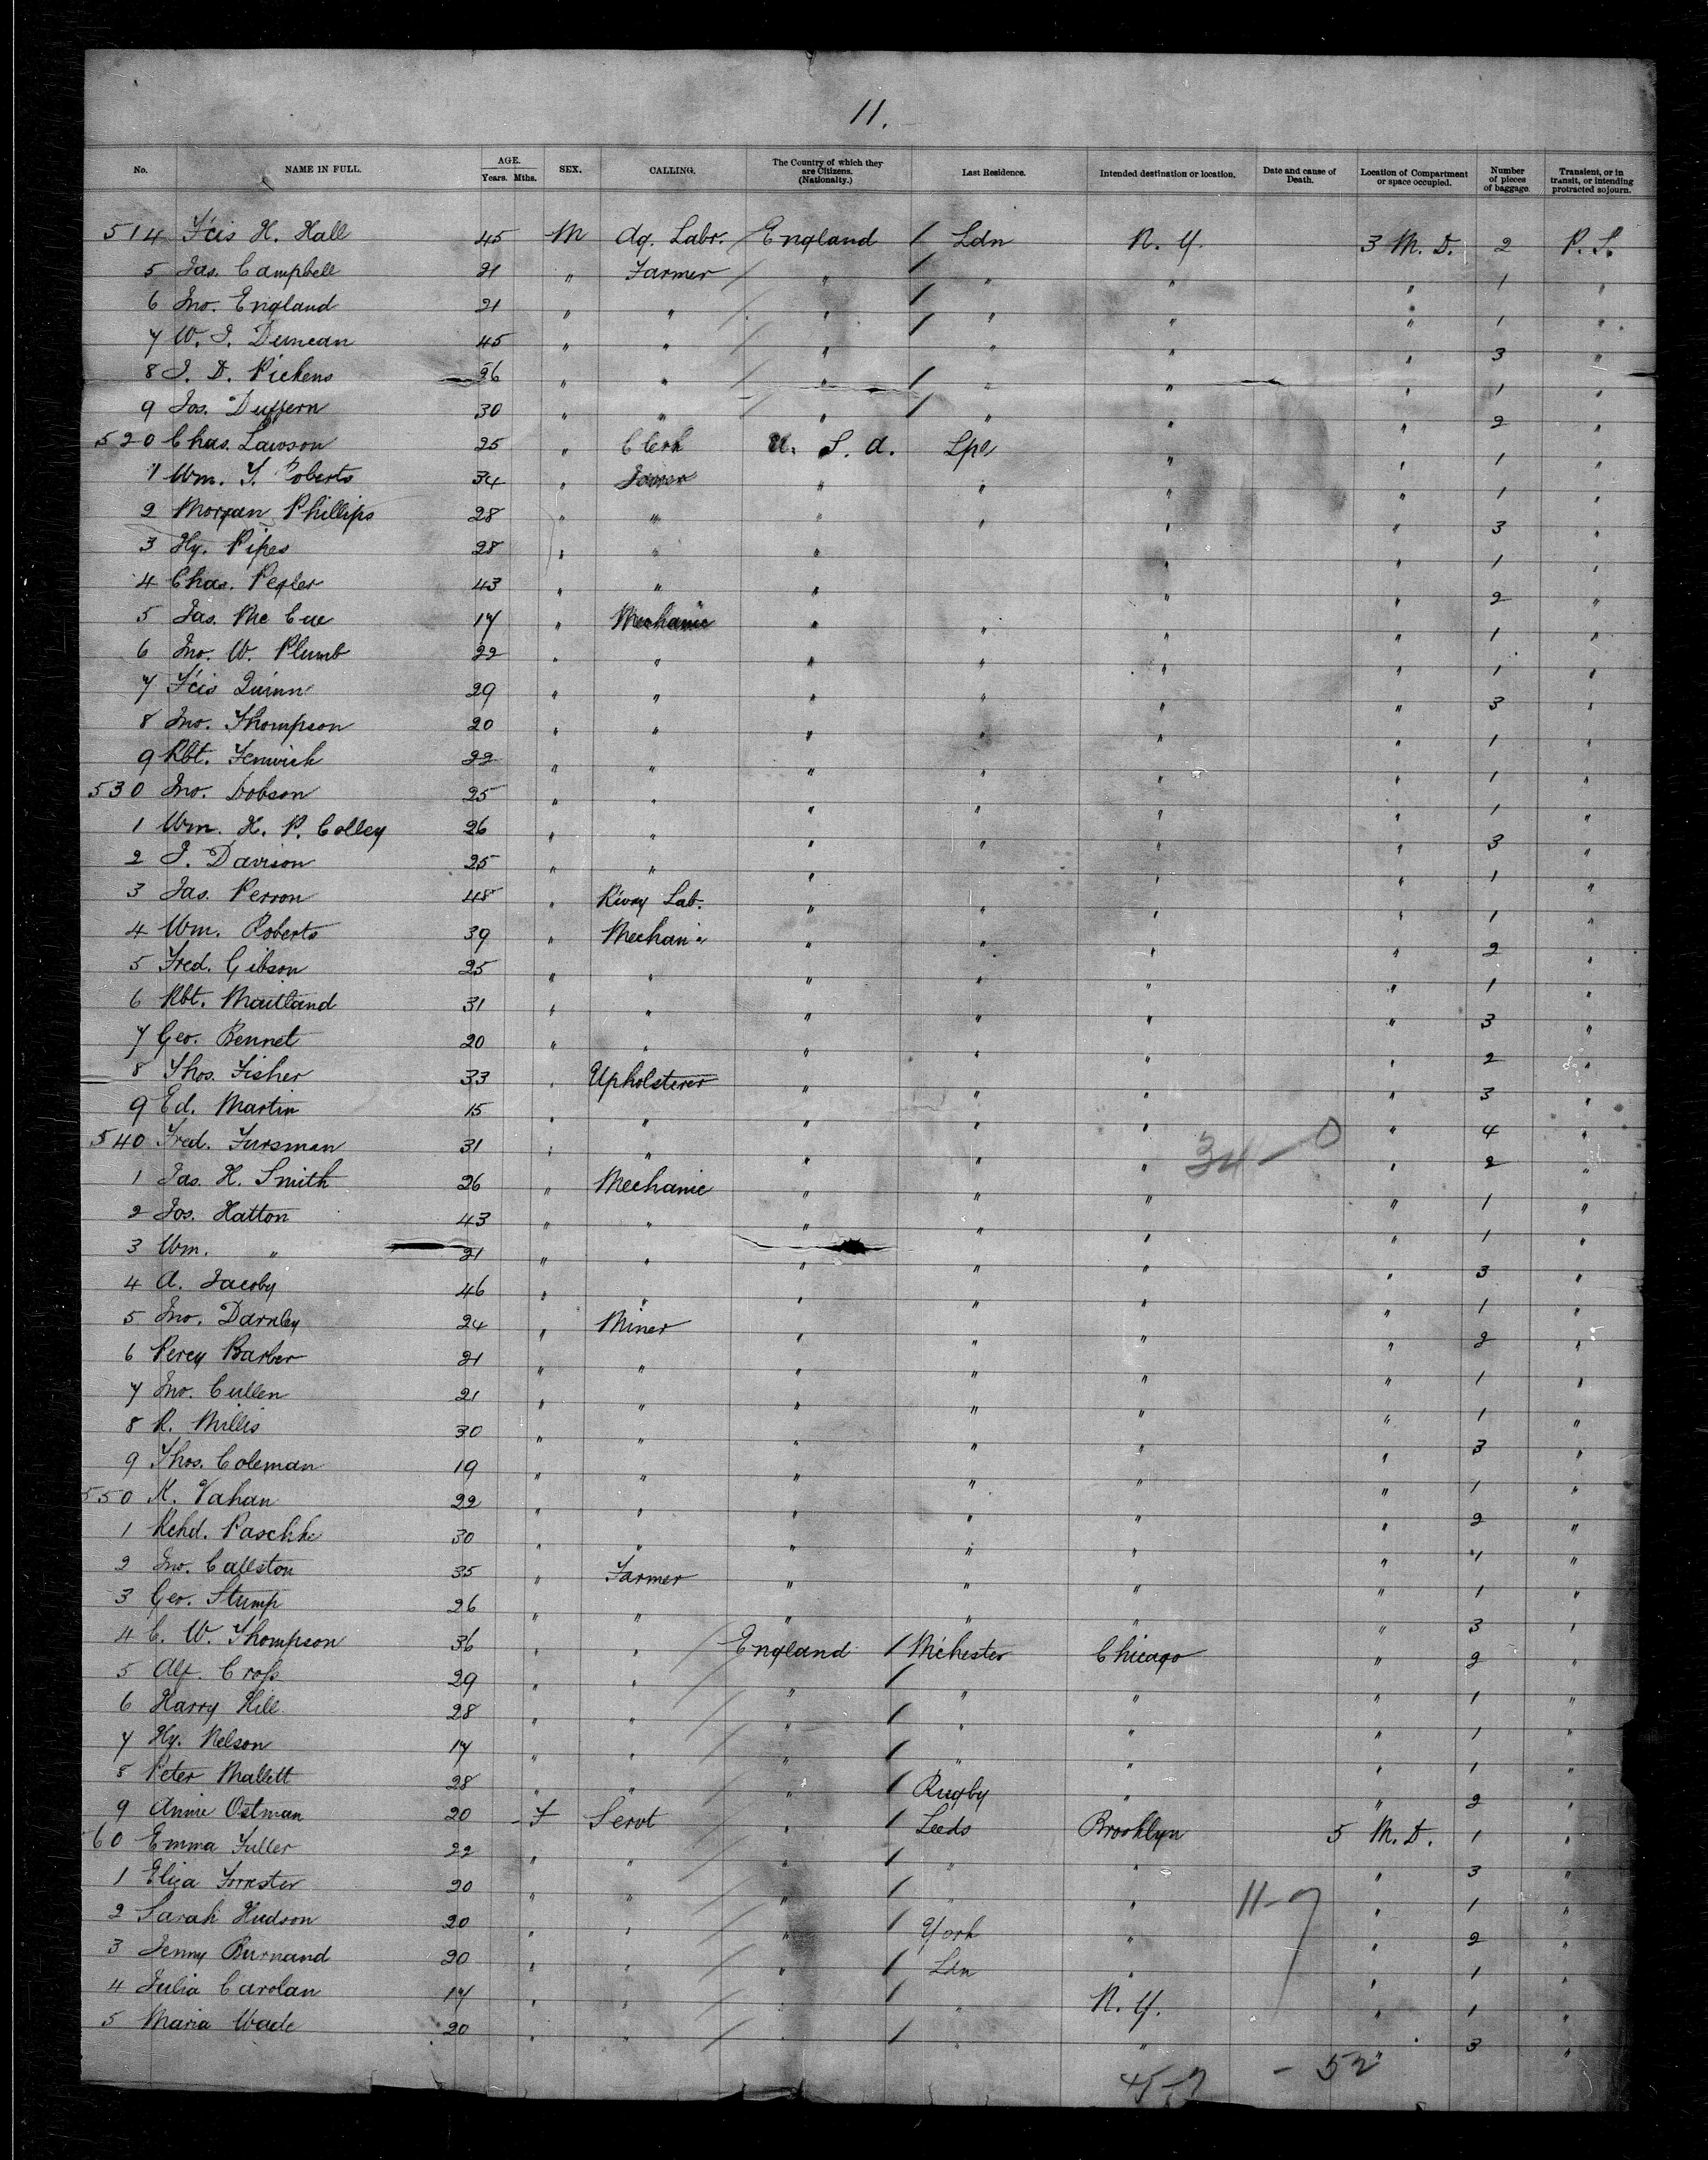 11.
No. NAME IN FULL. AGE. Years. Mths. SEX. CALLING. The Country of which they are Citizens. (Nationalty.) Last Residence. Intended destination or location. Date and cause of Death. Location of Compartment or space occupied. Number of pieces of baggage. Transient, or in transit, or intending protracted sojourn.
514 F'cis H. Hall 45 M Ag. Labr. England Ldn N. Y. 3 M. D. 2 P. S.
5 Jas. Campbell 21 " Farmer " " " " 1 "
6 Jno. England 21 " " " " " " 1 "
7 W. J. Duncan 45 " " " " " " 3 "
8 J. D. Pickens 26 " " " " " " 1 "
9 Jos. Duffern 30 " " " " " " 2 "
520 Chas. Lawson 25 " Clerk U. S. A. Lpl " " 1 "
1 Wm. T. Roberts 34 " " " " " 1 "
2 Morgan Phillips 28 " " " " " " 3 "
3 Hy. Pipes 28 " " " " " 1 "
4 Chas. Pegler 43 " " " " " 2 "
5 Jas. Mc Cue 17 " Mechanic " " " " 1 "
6 Jno. W. Plumb 22 " " " " " " 1 "
7 F'cis Quinn 29 " " " " " " 3 "
8 Jno. Thompson 20 " " " " " " 1 "
9 Rbt. Fenwick 22 " " " " " " 1 "
530 Jno. Dobson 25 " " " " " " 1 "
1 Wm. H. P. Colley 26 " " " " " " 3 "
2 J. Davison 25 " " " " " 1 "
3 Jas. Perron 48 " R'way Lab. " " " " 1 "
4 Wm. Roberts 39 " Mechanic " " " " 2 "
5 Fred. Gibson 25 " " " " " " 1 "
6 Rbt. Maitland 31 " " " " " " 3 "
7 Geo. Bennet 20 " " " " " " 2 "
8 Thos. Fisher 33 " Upholsterer " " " " 3 "
9 Ed. Martin 15 " " " " " " 4 "
540 Fred. Fursman 31 " " " " " 34-0 " 2 "
1 Jas. H. Smith 26 " Mechanic " " " " 1 "
2 Jos. Hatton 43 " " " " " " 1 "
3 Wm. " 21 " " " " " " 3 "
4 A. Jacoby 46 " " " " " " 1 "
5 Jno. Darnley 24 " Miner " " " " 2 "
6 Percy Barber 21 " " " " " " 1 "
7 Jno. Cullen 21 " " " " " " 1 "
8 R. Millis 30 " " " " " " 3 "
9 Thos. Coleman 19 " " " " " " 1 "
550 K. Vahan 22 " " " " " " 2 "
1 Rchd. Paschke 30 " " " " " " "
2 Jno. Callston 35 " Farmer " " " " 1 "
3 Geo. Stump 26 " " " " " " 3 "
4 C. W. Thompson 36 " " England M'chester Chicago " 2 "
5 Alf. Cross 29 " " " " " " 1 "
6 Harry Hill 28 " " " " " " 1 "
7 Hy. Nelson 17 " " " " " " 1 "
8 Peter Mallett 28 " " " Rugby " " 2 "
9 Annie Ostman 20 F Servt " Leeds Brooklyn 5 M. D. 1 "
60 Emma Fuller 22 " " " " " " 3 "
1 Eliza Forrester 20 " " " " " 11-7 " 1 "
2 Sarah Hudson 20 " " " York " " 2 "
3 Jenny Burnand 20 " " " Ldn " " 1 "
4 Julia Carolan 17 " " " N. Y. " 1 "
5 Maria Wade 20 " " " " " " 3 "
45-7 - 52